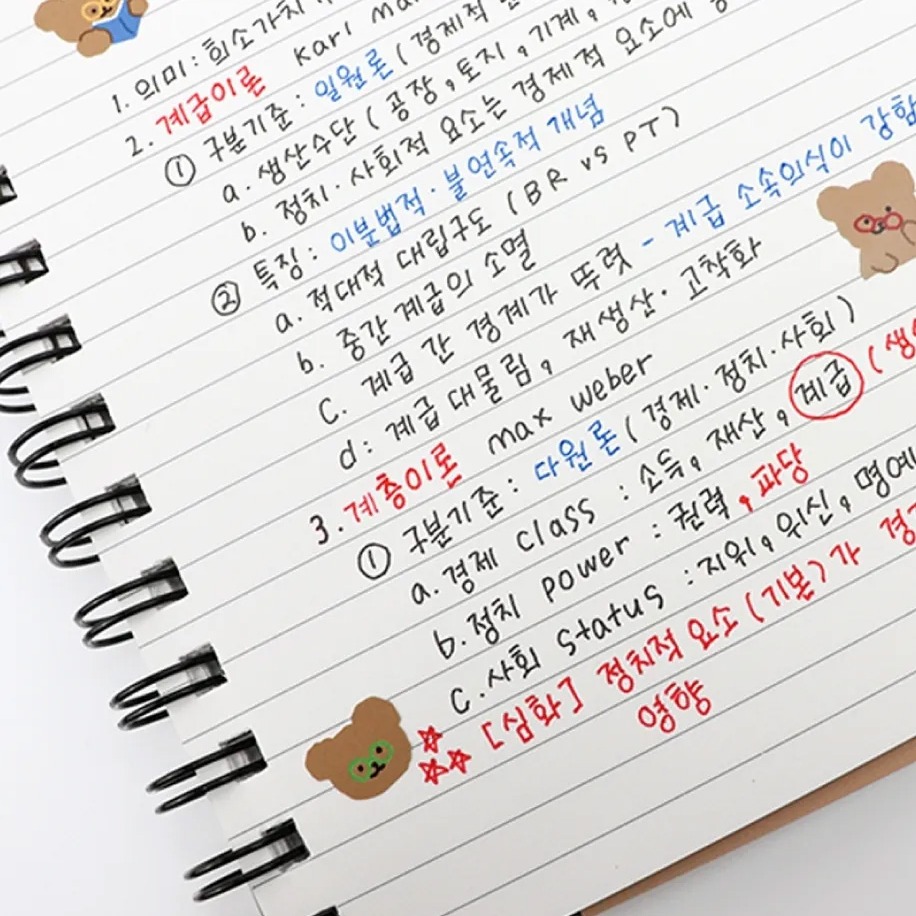 1. 의미: 희소가치
2. 계급이론 Karl Ma
① 구분기준: 일원론 (경제적
a. 생산수단 (공장, 토지, 기계,
b. 정치·사회적 요소는 경제적 요소에
② 특징: 이분법적·불연속적 개념
a. 적대적 대립구도 (BR vs PT)
b. 중간계급의 소멸
C. 계급 간 경계가 뚜렷 - 계급 소속의식이 강함
d: 계급 대물림, 재생산·고착화
3. 계층이론 max weber
① 구분기준: 다원론 (경제·정치·사회)
a. 경제 class : 소득, 재산, 계급 (생
b. 정치 power : 권력, 파당
C. 사회 status : 지위, 위신, 명예
[심화] 정치적 요소(기본)가 경
영향